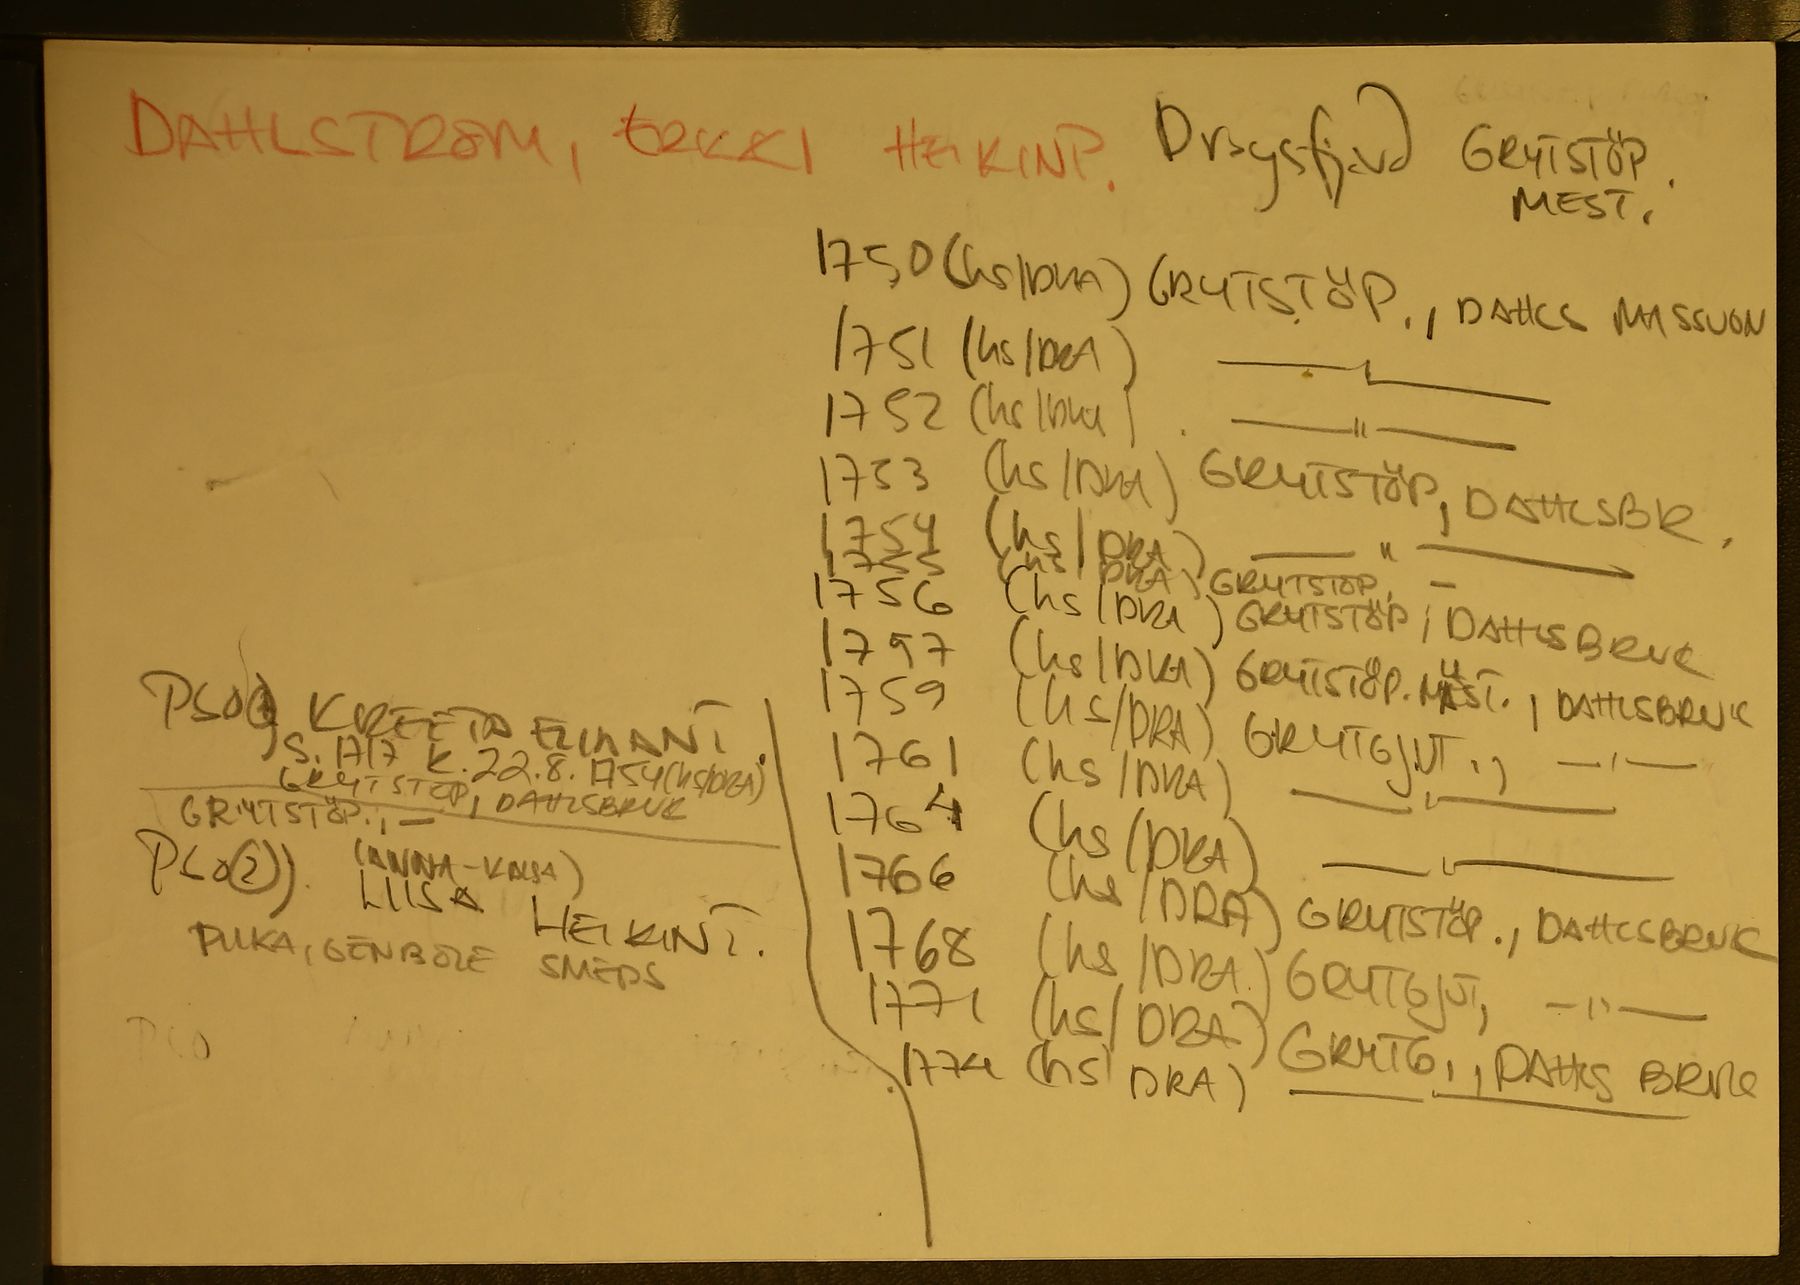 DAHLSTRÖM, ERKKI HEIKINP. Dragsfjärd GRYTSTÖP.
MEST.
1750 (hs/DRA) GRYTSTÖP., DAHLS MASSUON
1751 (hs/DRA) —"—
1752 (hs/DRA) —"—
1753 (hs/DRA) GRYTSTÖP, DAHLSBR.
1754 (hs/DRA) —"—
1755 (hs/DRA) GRYTSTÖP, —
1756 (hs/DRA) GRYTSTÖP, DAHLSBRUK
1757 (hs/DRA) GRYTSTÖP. MÄST., DAHLSBRUK
1759 (hs/DRA) GRYTGJUT., —"—
1761 (hs/DRA) —"—
1764 (hs/DRA) —"—
1766 (hs/DRA) GRYTSTÖP., DAHLSBRUK
1768 (hs/DRA) GRYTGJUT, —"—
1771 (hs/DRA) GRYTG., DAHLS BRUK
1774 (hs/DRA) —"—
PSO(1) KREETA ERIKANT.
S. 1717 K. 22.8.1754 (hs/DRA)
GRYTSTÖP, DAHLSBRUK
GRYTSTÖP., —
PSO(2)). (ANNA-KAISA)
LIISA HEIKINT.
PIIKA, GENBÖLE SMEDS
PSO